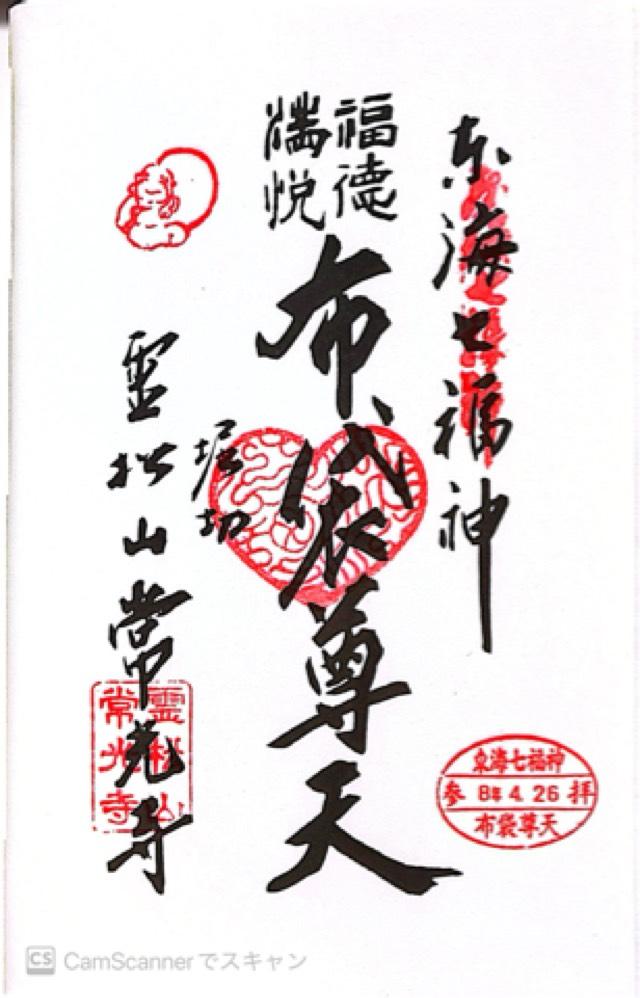 東海七福神
福徳
布袋尊天
堀切
霊松山常光寺
霊松山
常光寺
東海七福神
参 8年 4.26 拝
布袋尊天
CS CamScannerでスキャン